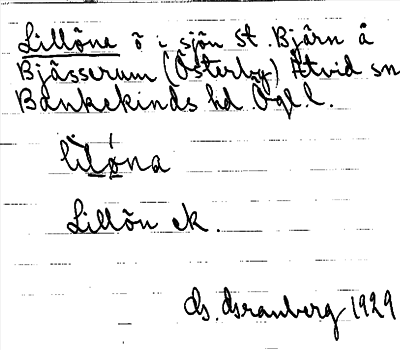 Lillöne ö i sjön St. Bjärn å
Bjässerum (Österby) Åtvid sn
Bankekinds hd Ögl. l.
lilǿna
Lillön ek.
Gs. Granberg 1929